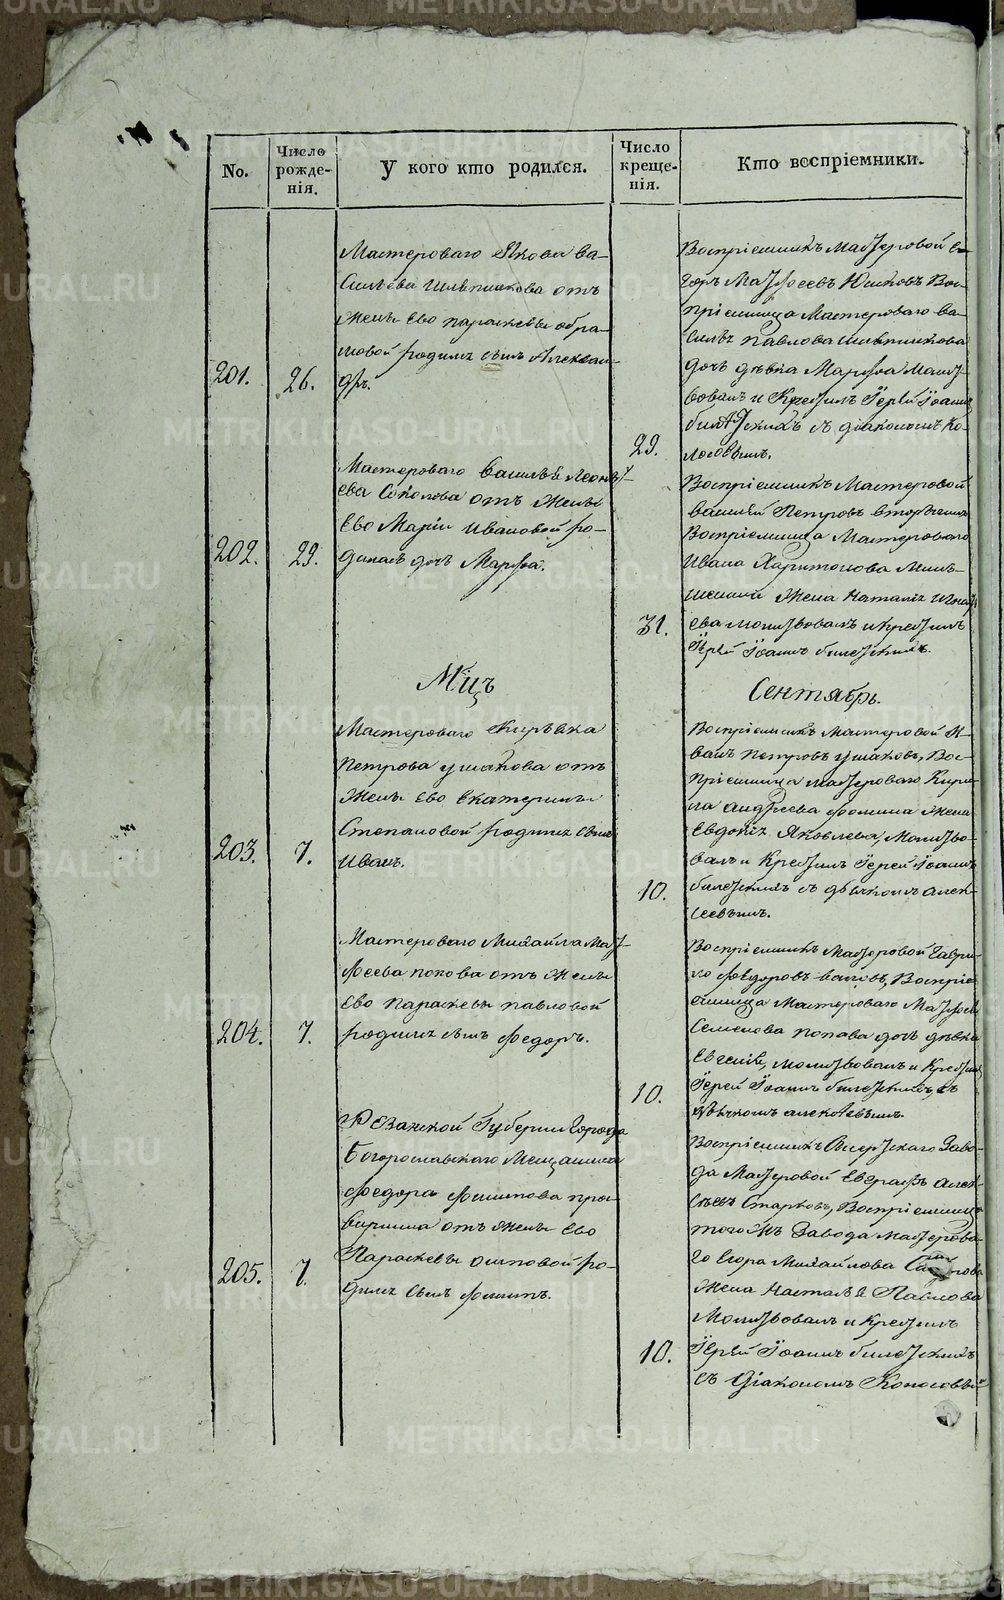 METRIKI.GASO-URAL.RU
No.
Число рожденія.
У кого кто родился.
Число крещенія.
Кто воспріемники.
201.
26.
Мастероваго Якова Ва-
сильева отъ
жены ево параскевы абра-
мовой родился сынъ Алексан-
дръ.
29.
Воспріемникъ Мастеровой Е-
горъ Матфеевъ Юшковъ Вос-
пріемница Мастероваго Ва-
силья Павлова
дочь девка Марфа Молит-
вовалъ и Крестилъ Іерей Іоаннъ
съ діакономъ Ко-
лосовымъ.
202.
29.
Мастероваго Василья Леонть-
ева Соколова отъ жены
Ево Маріи Ивановой ро-
дилась дочь Марфа.
31.
Воспріемникъ Мастеровой
Василей Петровъ
Воспріемница Мастероваго
Ивана Харитонова
жена Наталья
ева молитвовалъ и крестилъ
Іерей Іоаннъ
Мцъ
Сентябрь.
203.
7.
Мастероваго
Петрова ушакова отъ
жены ево Екатерины
Степановой родился сынъ
Иванъ.
10.
Воспріемникъ Мастеровой И-
ванъ Петровъ ушаковъ, Вос-
пріемница мастероваго Кири-
ла андреева фомина жена
Евдокія Яковлева, Молитво-
валъ и Крестилъ Іерей Іоаннъ
съ дьячкомъ Алек-
сеевымъ.
204.
7.
Мастероваго Михайла Мат-
феева попова отъ жены
ево Параскевы павловой
родился сынъ Федоръ.
10.
Воспріемникъ Мастеровой Гаври-
ло Федоровъ Воспріе-
емница Мастероваго Матфея
Семенова попава дочь девка
молитвовалъ и Крестилъ
Іерей Іоаннъ съ
дьячкомъ алексеевымъ.
205.
7.
Рязанской Губерніи города
Мещанина
Федора Филипова
отъ жены Ево
Параскевы осиповой ро-
дился сынъ Филипъ.
10.
Воспріемникъ Сысертскаго Заво-
да Мастеровой Евграфъ Алек-
сеевъ Старковъ, Воспріемница
того жъ Завода Мастерова-
го Егора Михайлова
жена Наталья Павлова
Молитвовалъ и Крестилъ
Іерей Іоаннъ
съ Діакономъ Колосовымъ